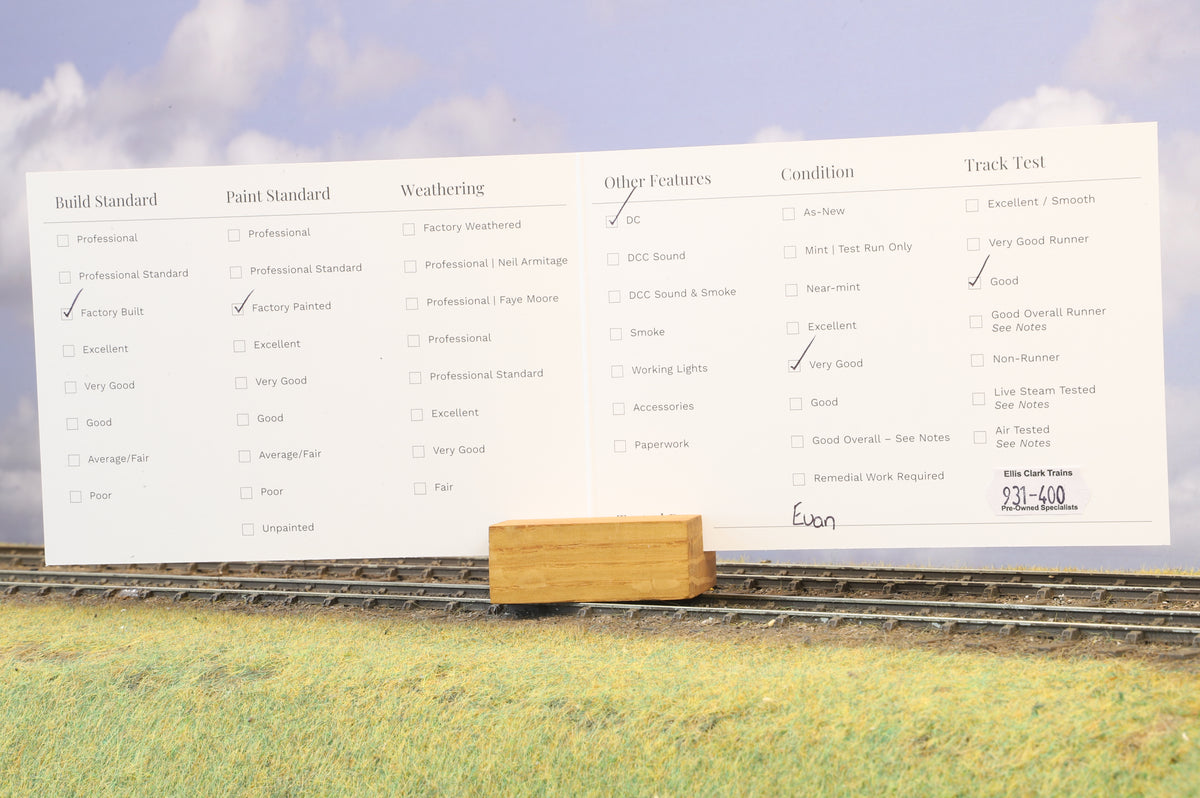 Build Standard
Professional
Professional Standard
Factory Built
Excellent
Very Good
Good
Average/Fair
Poor
Paint Standard
Professional
Professional Standard
Factory Painted
Excellent
Very Good
Good
Average/Fair
Poor
Unpainted
Weathering
Factory Weathered
Professional | Neil Armitage
Professional | Faye Moore
Professional
Professional Standard
Excellent
Very Good
Fair
Other Features
DC
DCC Sound
DCC Sound & Smoke
Smoke
Working Lights
Accessories
Paperwork
Condition
As-New
Mint | Test Run Only
Near-mint
Excellent
Very Good
Good
Good Overall – See Notes
Remedial Work Required
Track Test
Excellent / Smooth
Very Good Runner
Good
Good Overall Runner
See Notes
Non-Runner
Live Steam Tested
See Notes
Air Tested
See Notes
Ellis Clark Trains
931-400
Pre-Owned Specialists
Evan